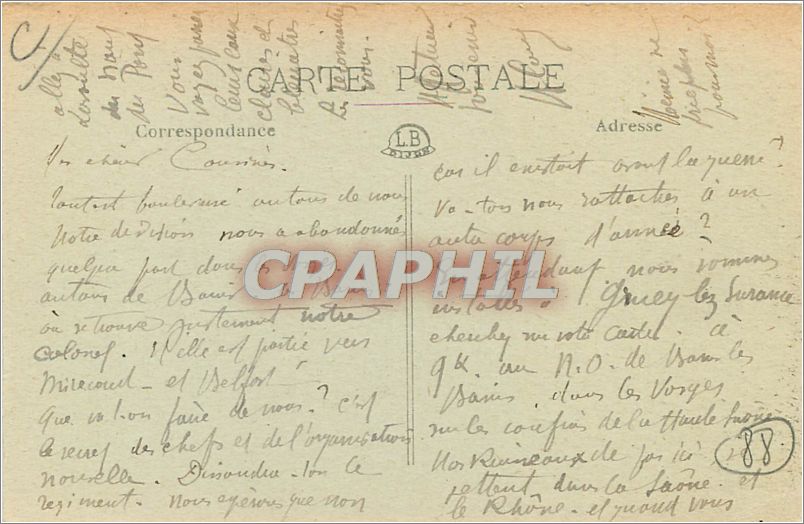 CARTE POSTALE
Correspondance
LB
DIJON
Adresse
Mes chères Cousines.
Tout est bouleversé autour de nous
Notre division nous a abandonnés
quelque part dans les
autour de Bains
où se trouve justement notre
Colonel. Elle est partie vers
Mirecourt - et Belfort
Que va-t-on faire de nous? C'est
le secret des chefs et de l'organisation
nouvelle. Dissoudra-t-on le
régiment. nous espérons que non
car il existait avant la guerre.
Va-t-on nous rattacher à un
autre corps d'armée?
En attendant nous sommes
installés à Gruey lez Surance
cherchez sur votre carte. à
9k. au N.O. de Bains les
Bains, dans les Vosges
sur les confins de la Haute Saône
Nos Ruisseaux de par ici se
jettent dans la Saône et
le Rhône - et quand vous
allez à
Lavoulte
du
du Pont
Vous
voyez passer
leurs eaux
claires et
bleuâtres
Les reconnaissez
vous.
88
CPAPHIL